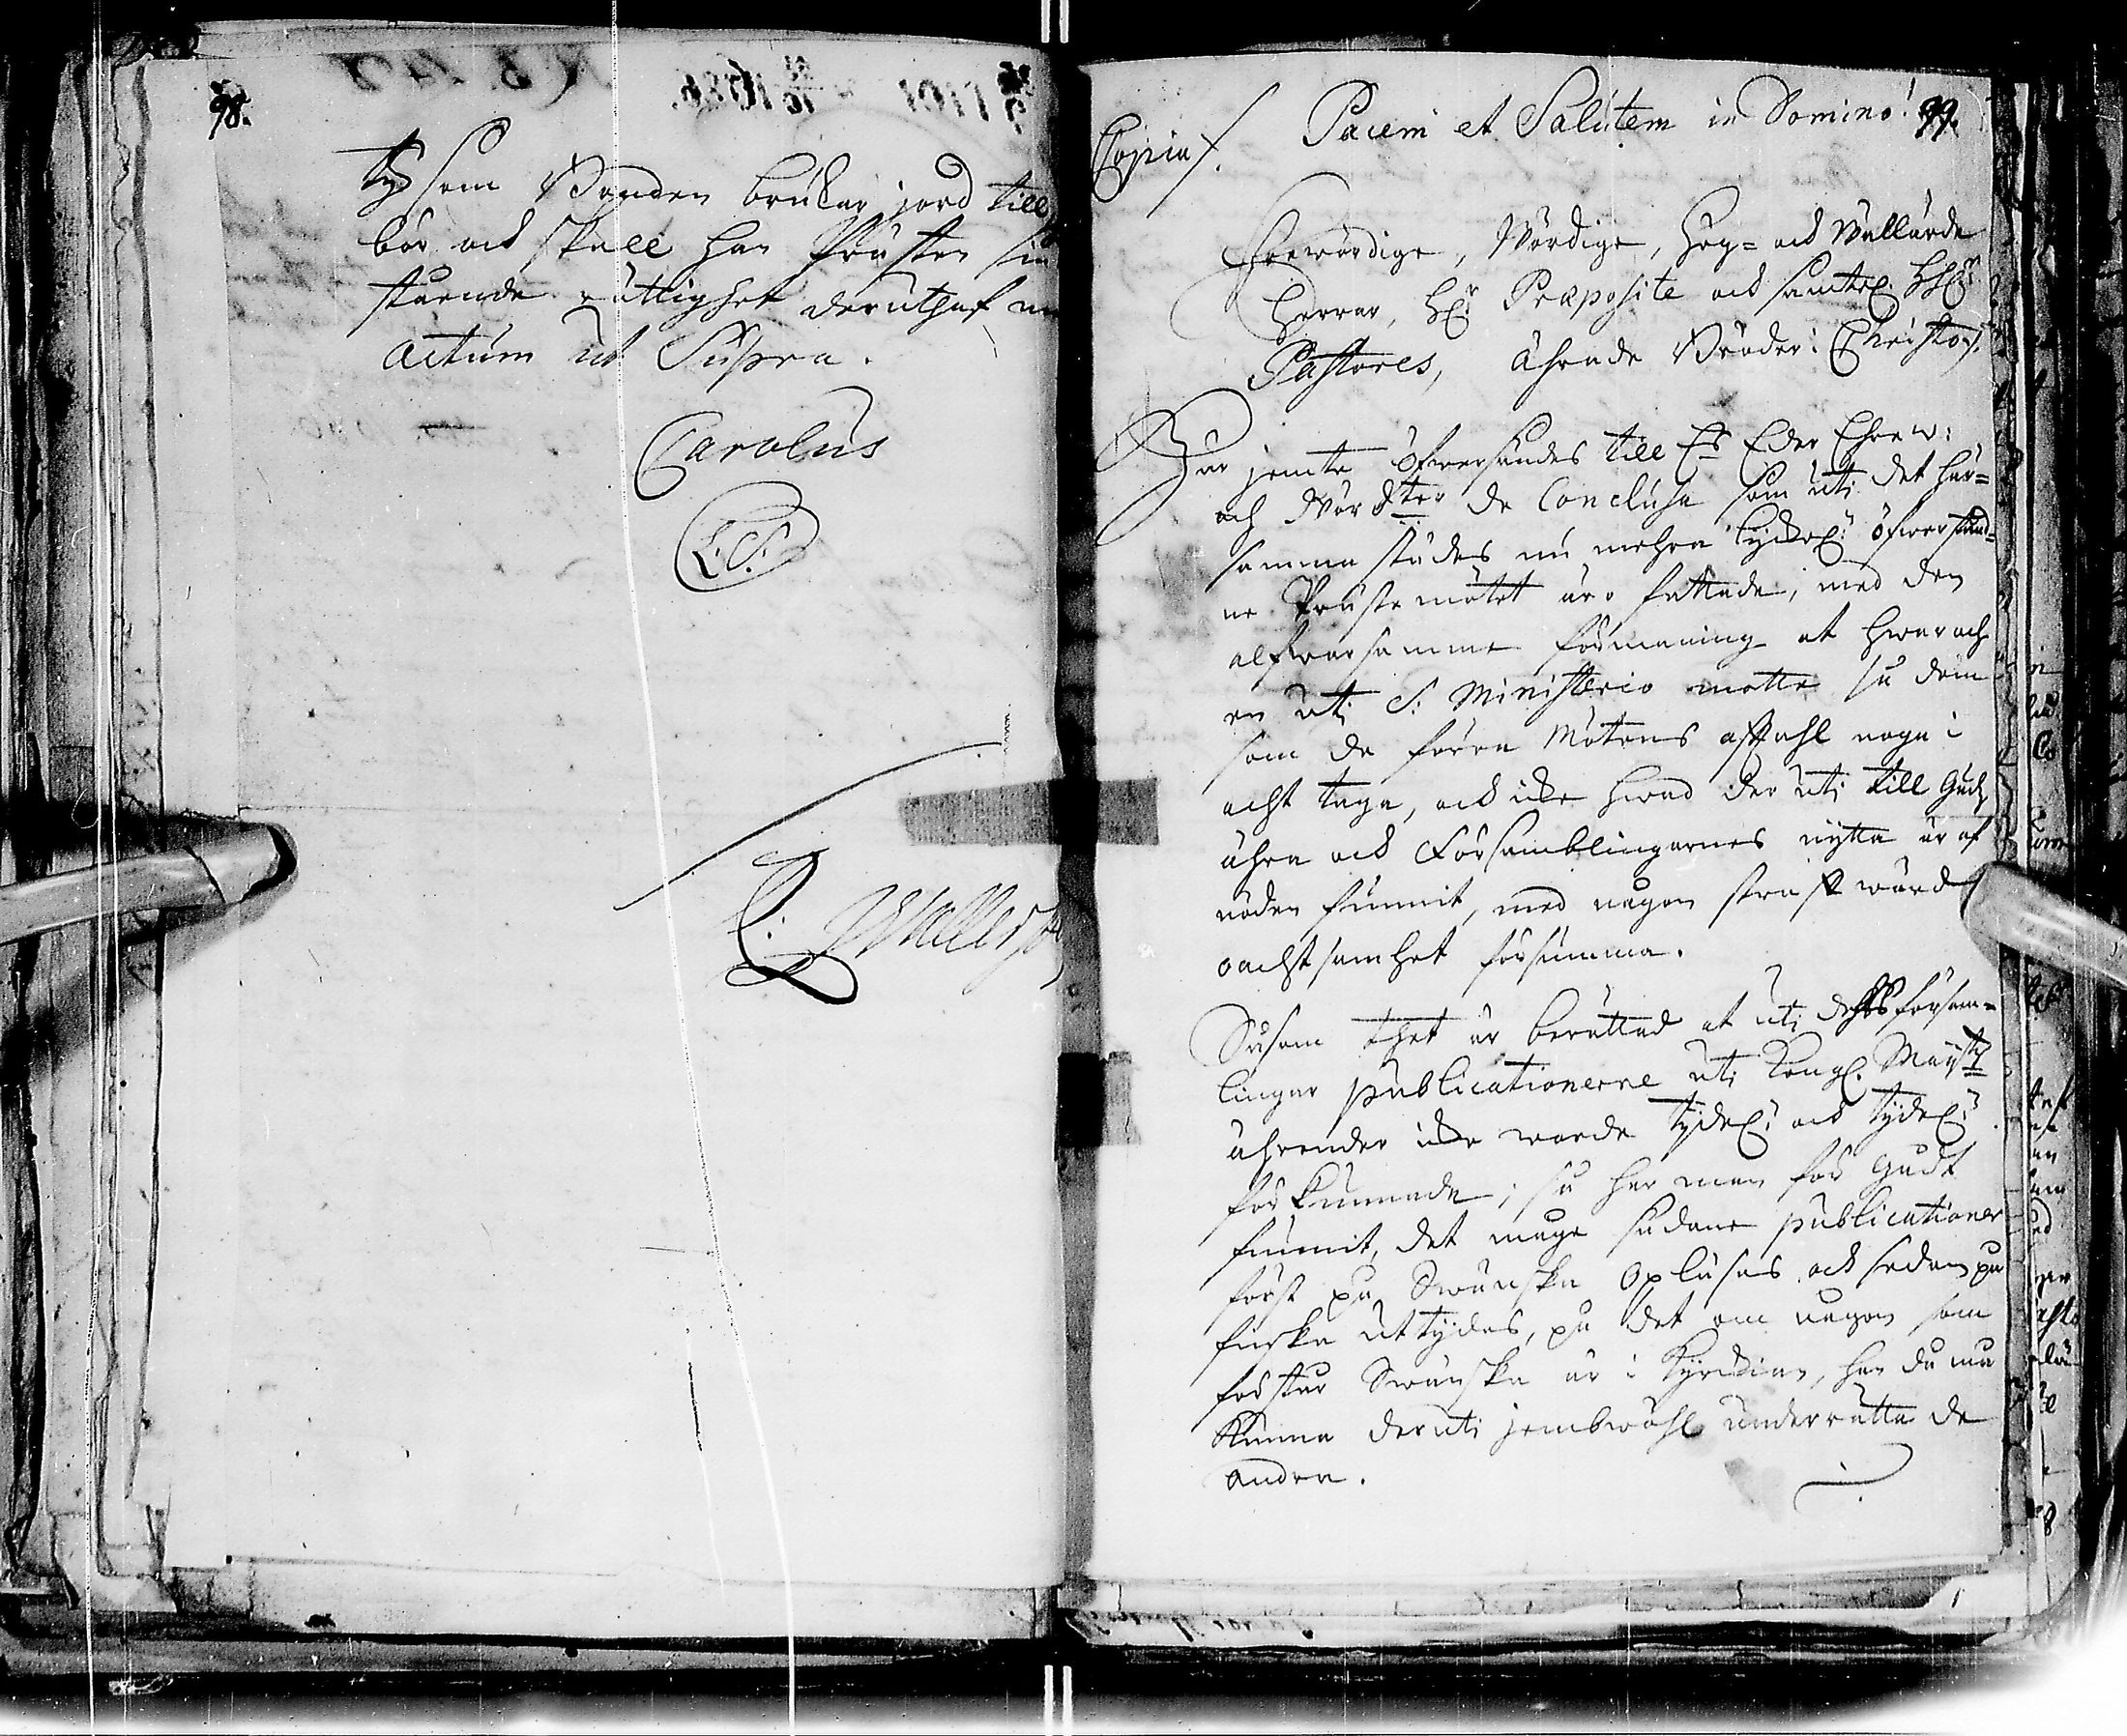 98.
ty som Bonden brukar jord till
bör och skall han Prästen sin
stående rättighet deruthaf
Actum ut Supra.
Carolus
L.S.
99.
Copia
Pacem et Salutem in Domino!
Ehrewördige, Wördige, Hög= och Wällärde
Herrar, H:r Præposite och samtel. HH:r
Pastores, Ährade Bröder i Christo.
Här jemte öfwersändes till Eder Ehrew:
och Wörd:ter de Conclusa som uti det här=
samma städes nu mehra lyckel: öfwerstånd=
ne Prästemötet äro fattade, med den
alfwarsamme förmaning at hwar och
en uti S: Ministerio motte så dem
som de förra Mötens afskahl noga i
acht taga, och icke hwad der uti till Gudz
ähra och Församblingarnes nytta är af
nöden funnit, med någon straffwärd
oachtsamhet försumma.
Såsom thet är berättad at uti dess försam=
lingar publicationerne uti Kongl. Maij:tz
ährender icke warda tydel: och tydel:
förkunnade; så har man för Gudt
funnit, det måge sådane publicationer
först på Swänska opläsas och sedan på
finska uttydas, på det om någon som
förstår Swänska är i Kyrckian, han då må
kunna deruti jembwähl underrätta de
andra.